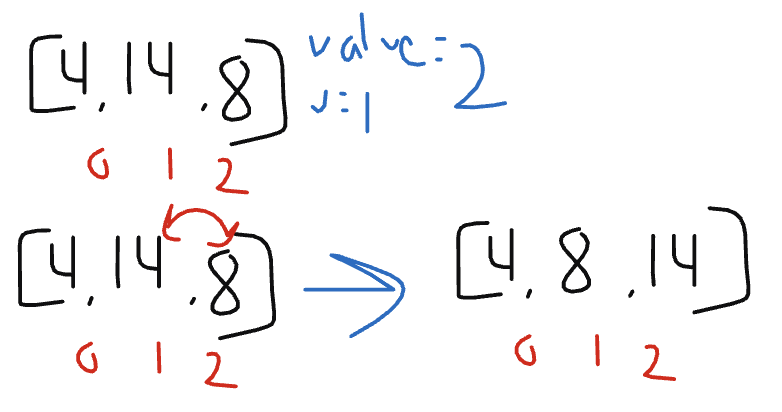 [4, 14, 8] value=2
v=1
0 1 2
[4, 14, 8] → [4, 8, 14]
0 1 2 0 1 2